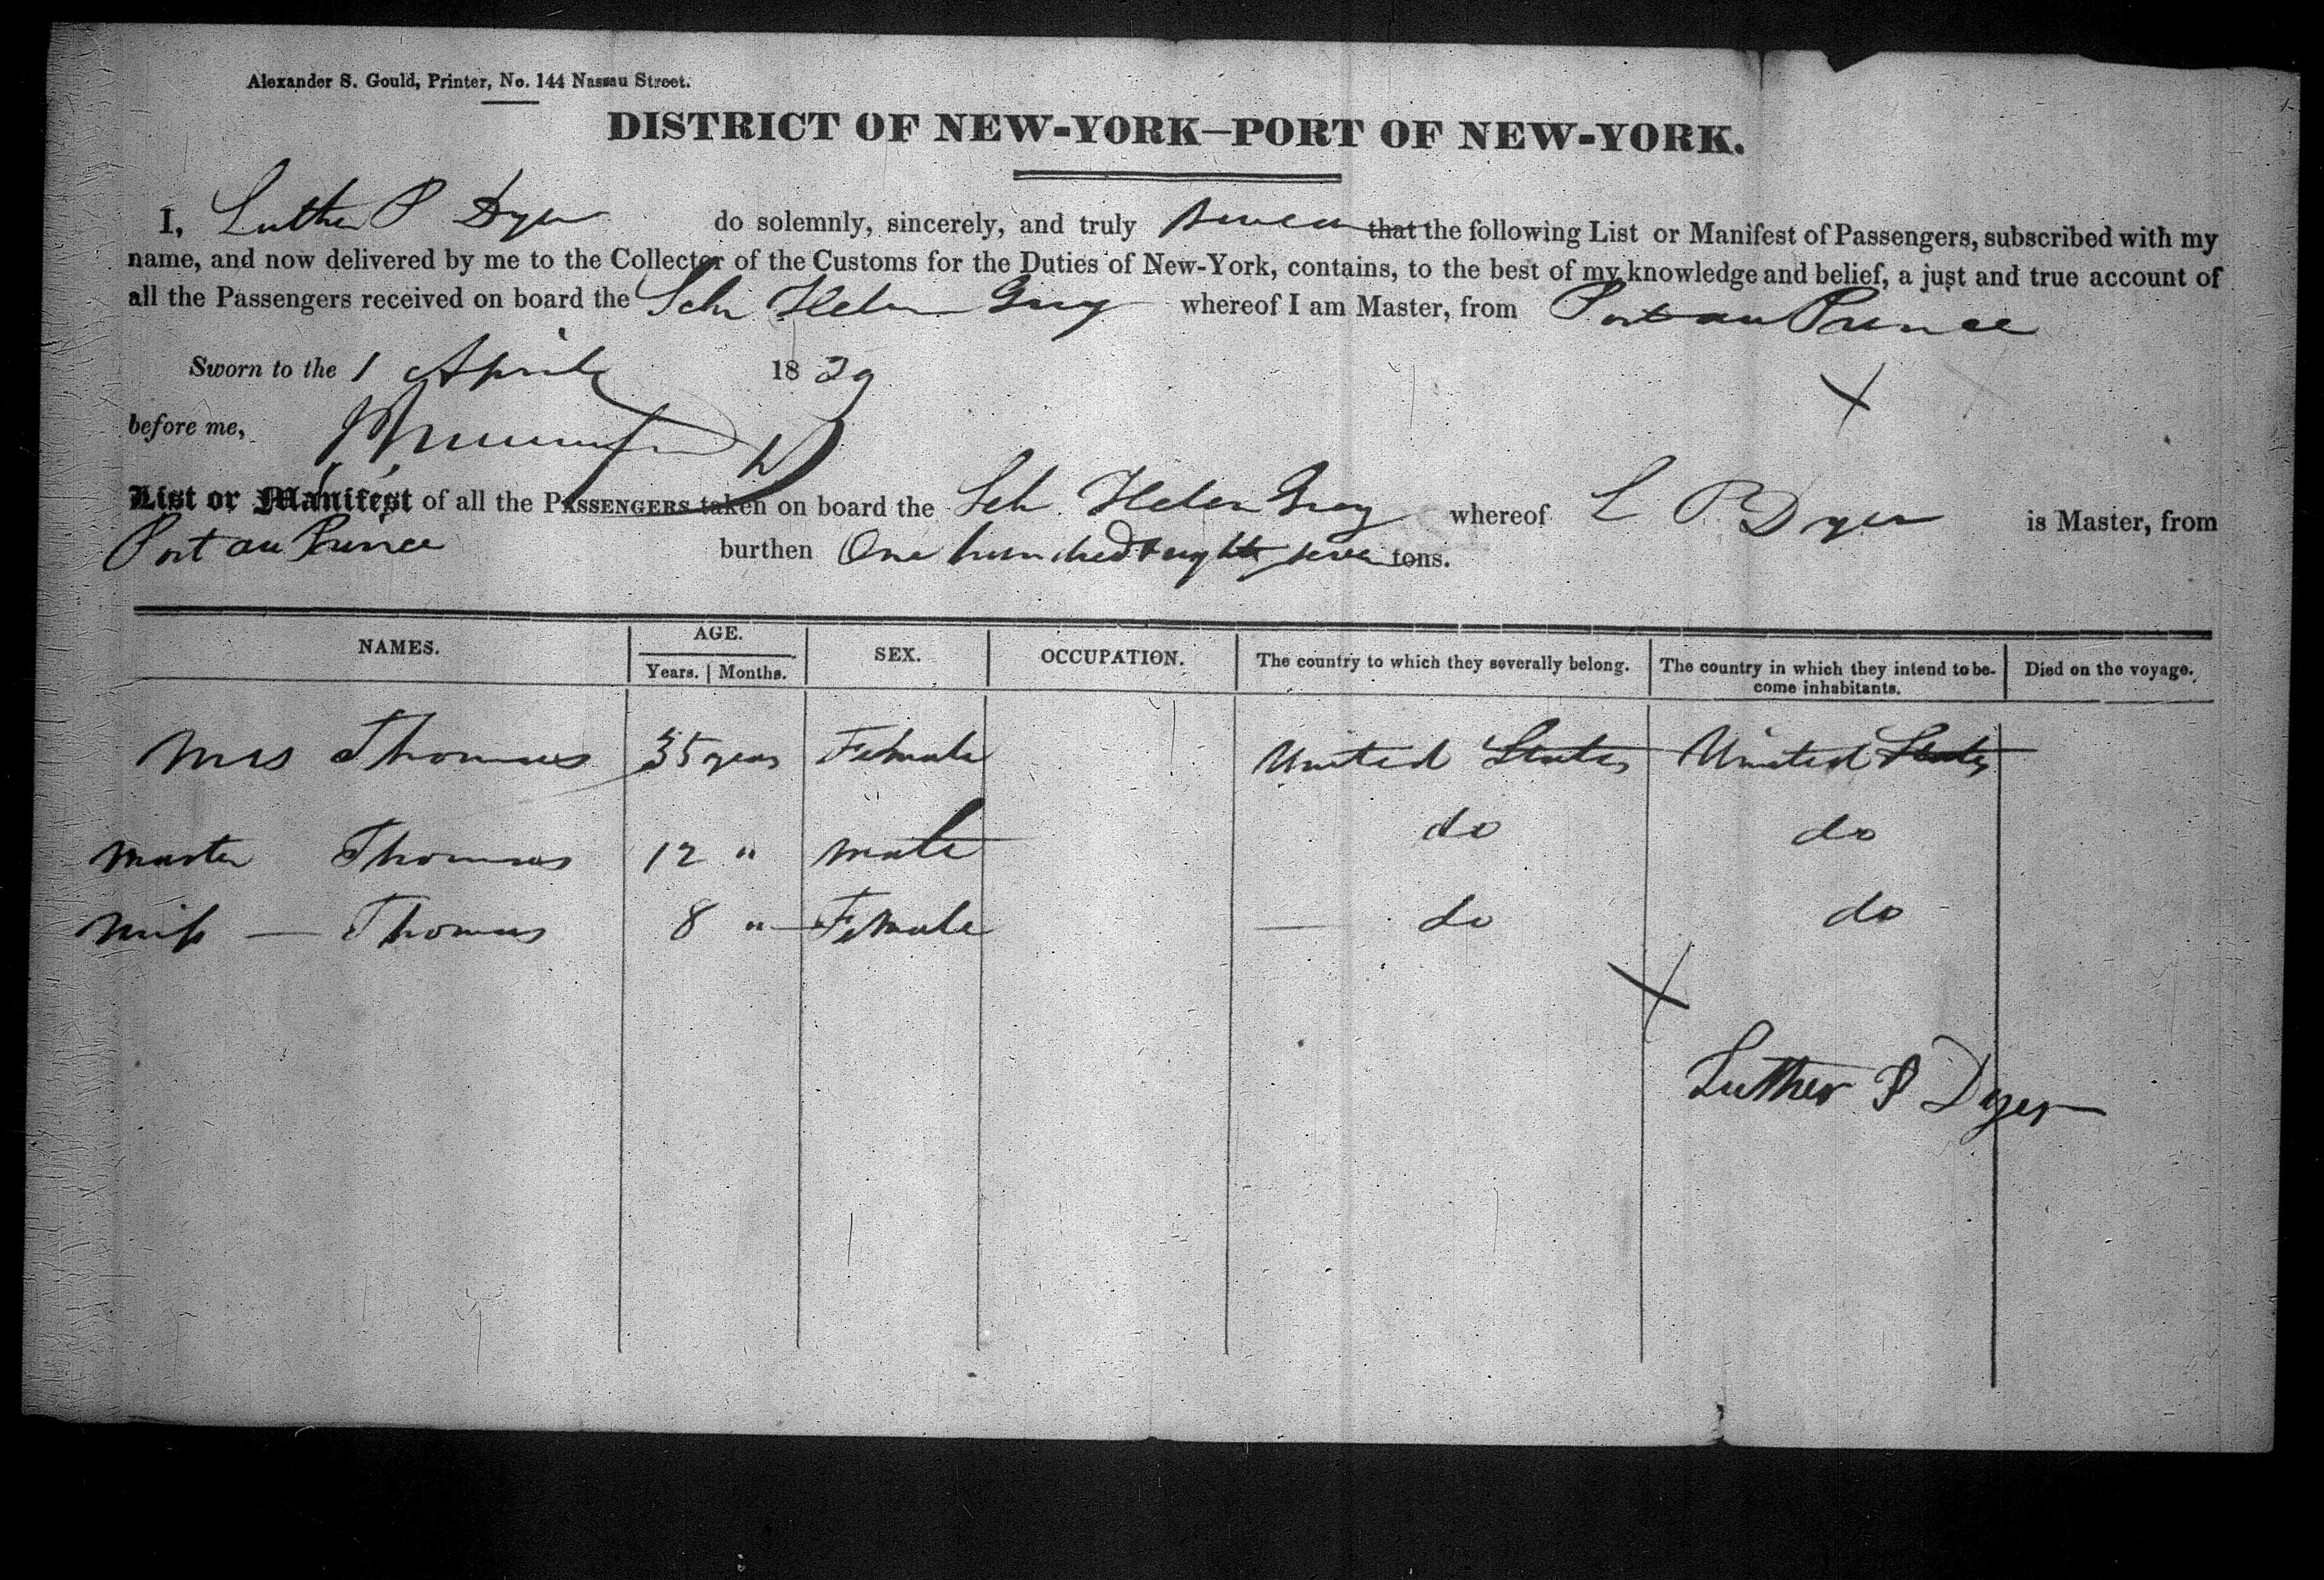 Alexander S. Gould, Printer, No. 144 Nassau Street.
DISTRICT OF NEW-YORK—PORT OF NEW-YORK.
I, Luther P Dyer do solemnly, sincerely, and truly swear that the following List or Manifest of Passengers, subscribed with my
name, and now delivered by me to the Collector of the Customs for the Duties of New-York, contains, to the best of my knowledge and belief, a just and true account of
all the Passengers received on board the Schr Helen Gray whereof I am Master, from Port au Prince
Sworn to the 1 April 1839
before me,
List or Manifest of all the PASSENGERS taken on board the Sch Helen Gray whereof L P Dyer is Master, from
Port au Prince burthen One hundred & eighty seven tons.
NAMES. AGE. SEX. OCCUPATION. The country to which they severally belong. The country in which they intend to be- Died on the voyage.
Years. Months. come inhabitants.
Mrs Thomas 35 years Female United States United States
Master Thomas 12 " Male do do
Miss — Thomas 8 " Female do do
Luther P Dyer